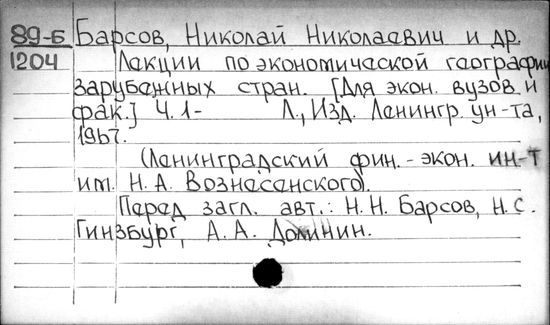 89-Б Барсов, Николай Николаевич и др.
1204 Лекции по экономической географии
зарубежных стран. [Для экон. вузов и
фак.] Ч. 1- Л., Изд. Ленингр. ун-та,
1967.
(Ленинградский фин.-экон. ин-т
им. Н. А. Вознесенского).
Перед загл. авт.: Н. Н. Барсов, Н. С.
Гинзбург, А. А. Долинин.